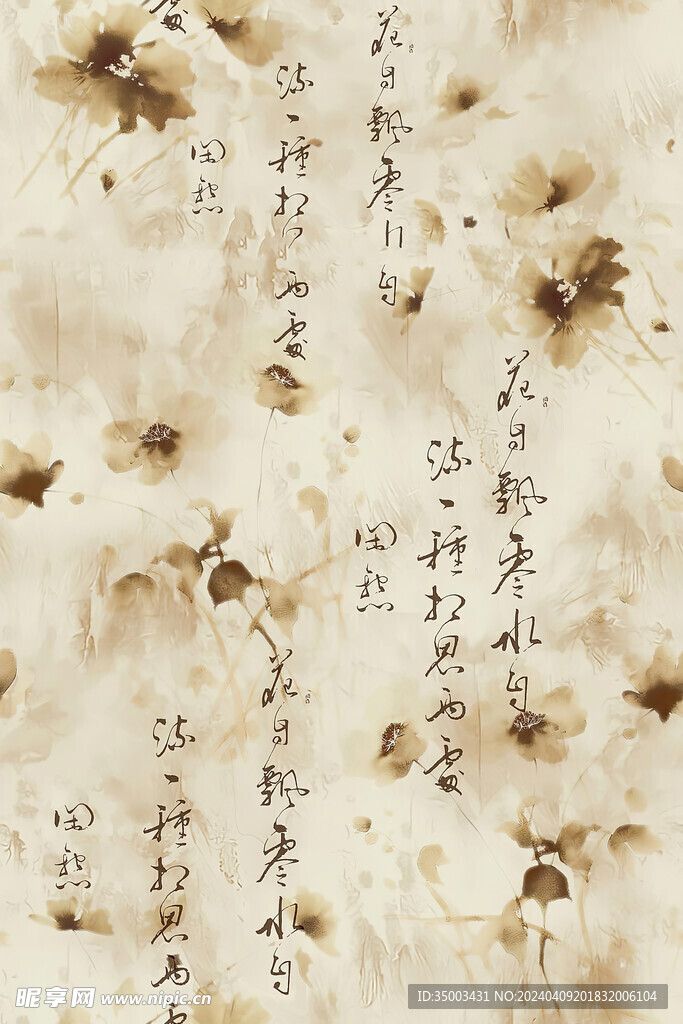 處
花自飄零自
流一種相兩處
閑愁
花自飄零水自
流一種相思兩處
閑愁
花自飄零水自
流一種相思兩處
閑愁
昵享网 www.nipic.cn
ID:35003431 NO:20240409201832006104